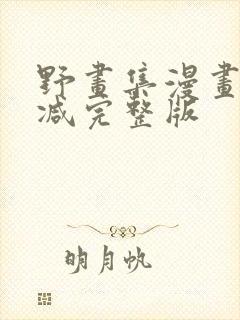 野畫集漫畫
减完整版
明月帆